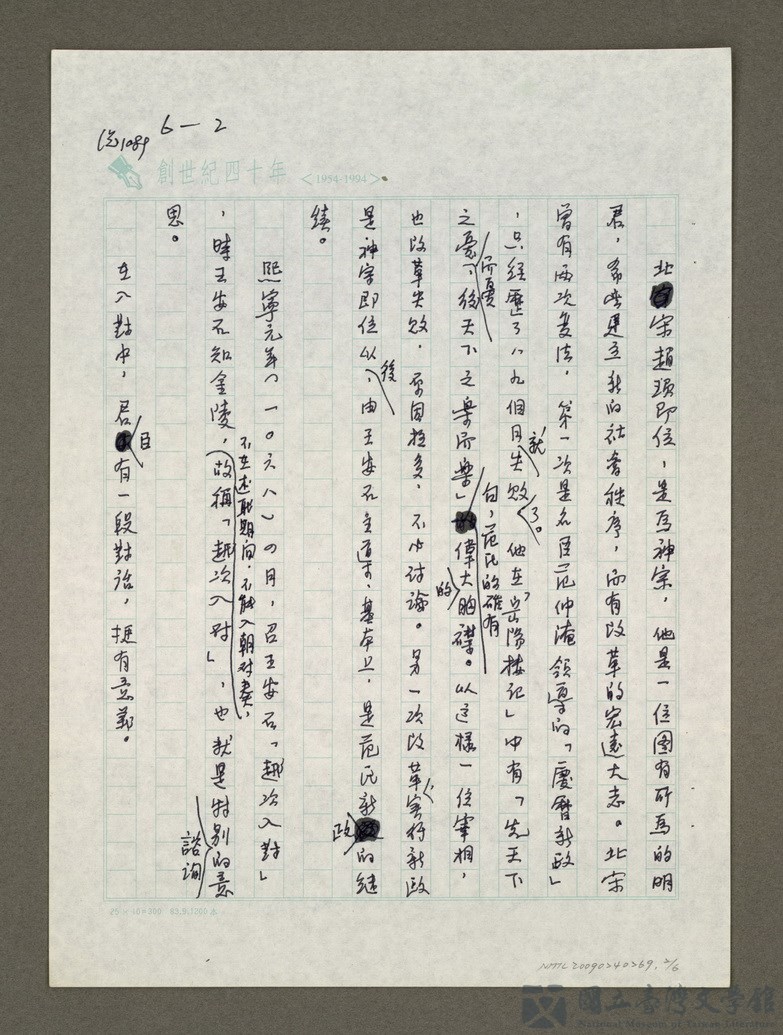 6－2
1089
創世紀四十年 <1954-1994>
北宋趙頊即位，是為神宗，他是一位圖有所為的明
君，希望建立新的社會秩序，而有改革的宏遠大志。北宋
曾有兩次變法，第一次是名臣范仲淹領導的「慶曆新政」
，只經歷了八九個月就失敗了。他在「岳陽樓記」中有「先天下
之憂而憂，後天下之樂而樂」句，范氏的確有偉大的胸襟。以這樣一位宰相，
也改革失敗，原因極多，不必討論。另一次改革實行新政
是神宗即位以後，由王安石主導，基本上，是范氏新政的繼
續。
熙寧元年（一〇六八）四月，召王安石「越次入對」
，時王安石知金陵，不在述職期間，不能入朝对奏，故稱「越次入对」，也就是特別諮詢的意
思。
在入對中，君臣有一段對話，极有意義。
25×16=300
NMTL20090240269, 2/6
國立臺灣文學館
National Museum of Taiwan Literature